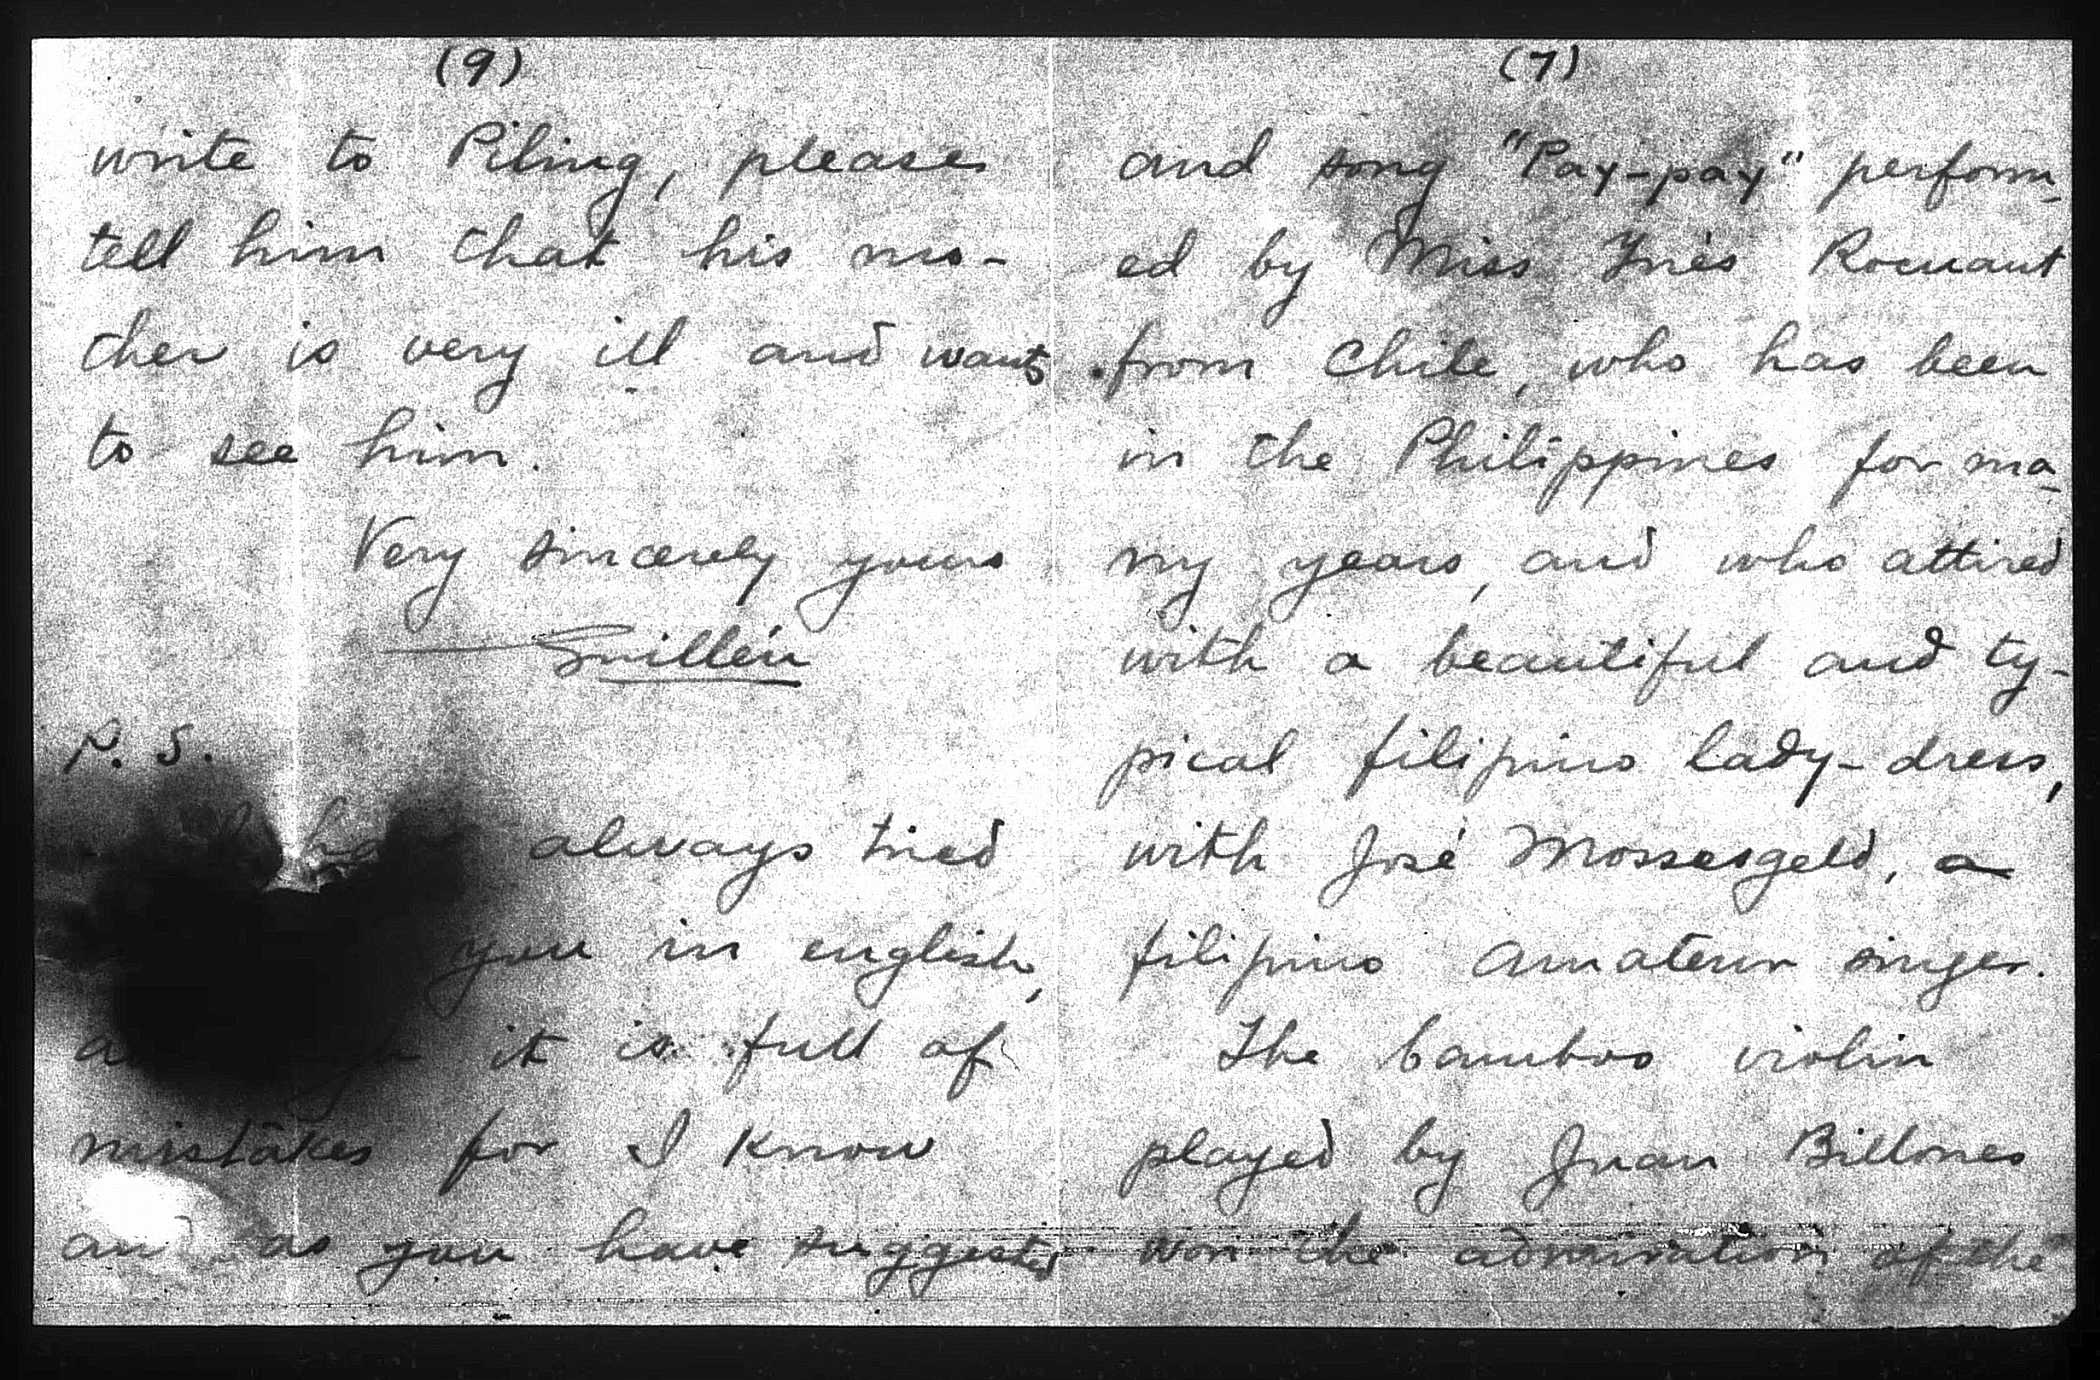 (9)
write to Piling, please
tell him that his mo-
ther is very ill and wants
to see him.
Very sincerely yours
Guillén
P. S.
I have always tried
you in english,
it is full of
mistakes for I know
and as you have suggested
(7)
and song "Pay-pay" perform-
ed by Miss Ynés
from Chile, who has been
in the Philippines for ma-
ny years, and who attired
with a beautiful and ty-
pical filipino lady-dress,
with José Mossesgeld, a
filipino amateur singer.
The bamboo violin
played by Juan Billones
won the admiration of the